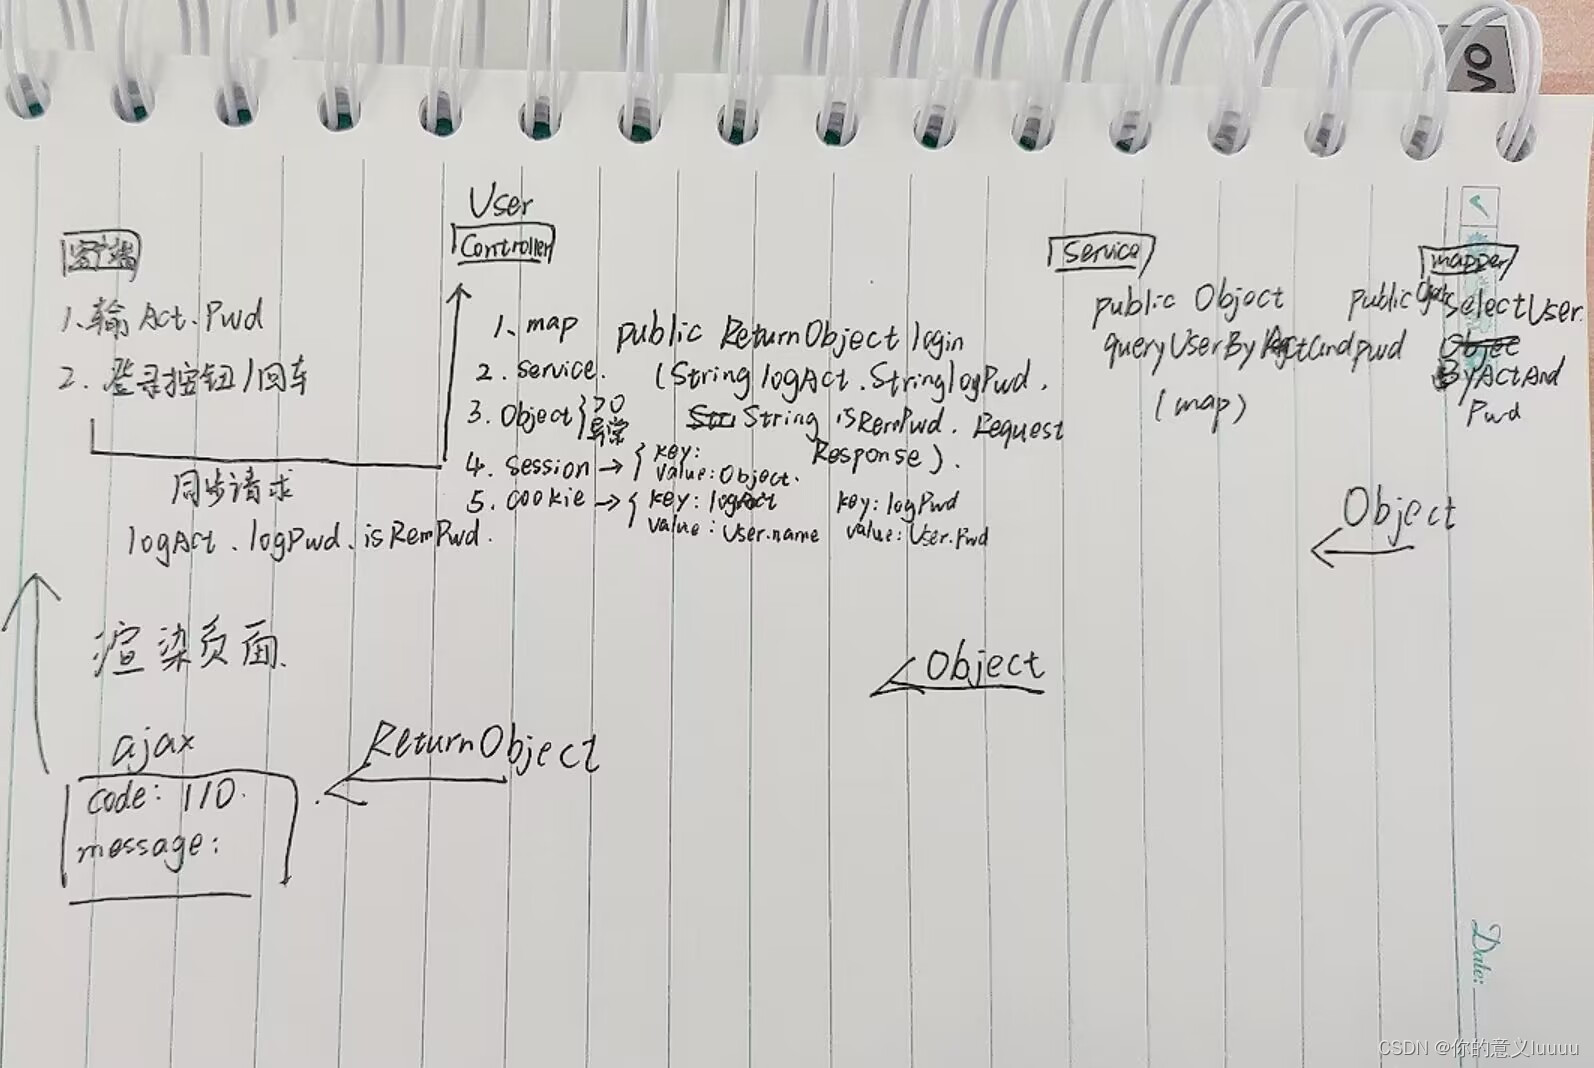 VO
客户端
1、输Act.Pwd
2. 登录按钮/回车
同步请求
logAct.logPwd.isRemPwd.
渲染页面.
ajax
code: 1/0.
message:
User
Controller
1、map
2. Service.
3. Object { >0
异常
4. Session → { key:
value: Object.
5. Cookie → { key: logAct
value: User.name
key: logPwd
value: User.Pwd
public ReturnObject login
(String logAct.String logPwd.
String isRemPwd. Request
Response).
ReturnObject
Service
public Object
queryUserByActandpwd
(map)
Object
mapper
public Object selectUser
Objec
ByActAnd
Pwd
Object
Date:
CSDN @你的意义luuuu